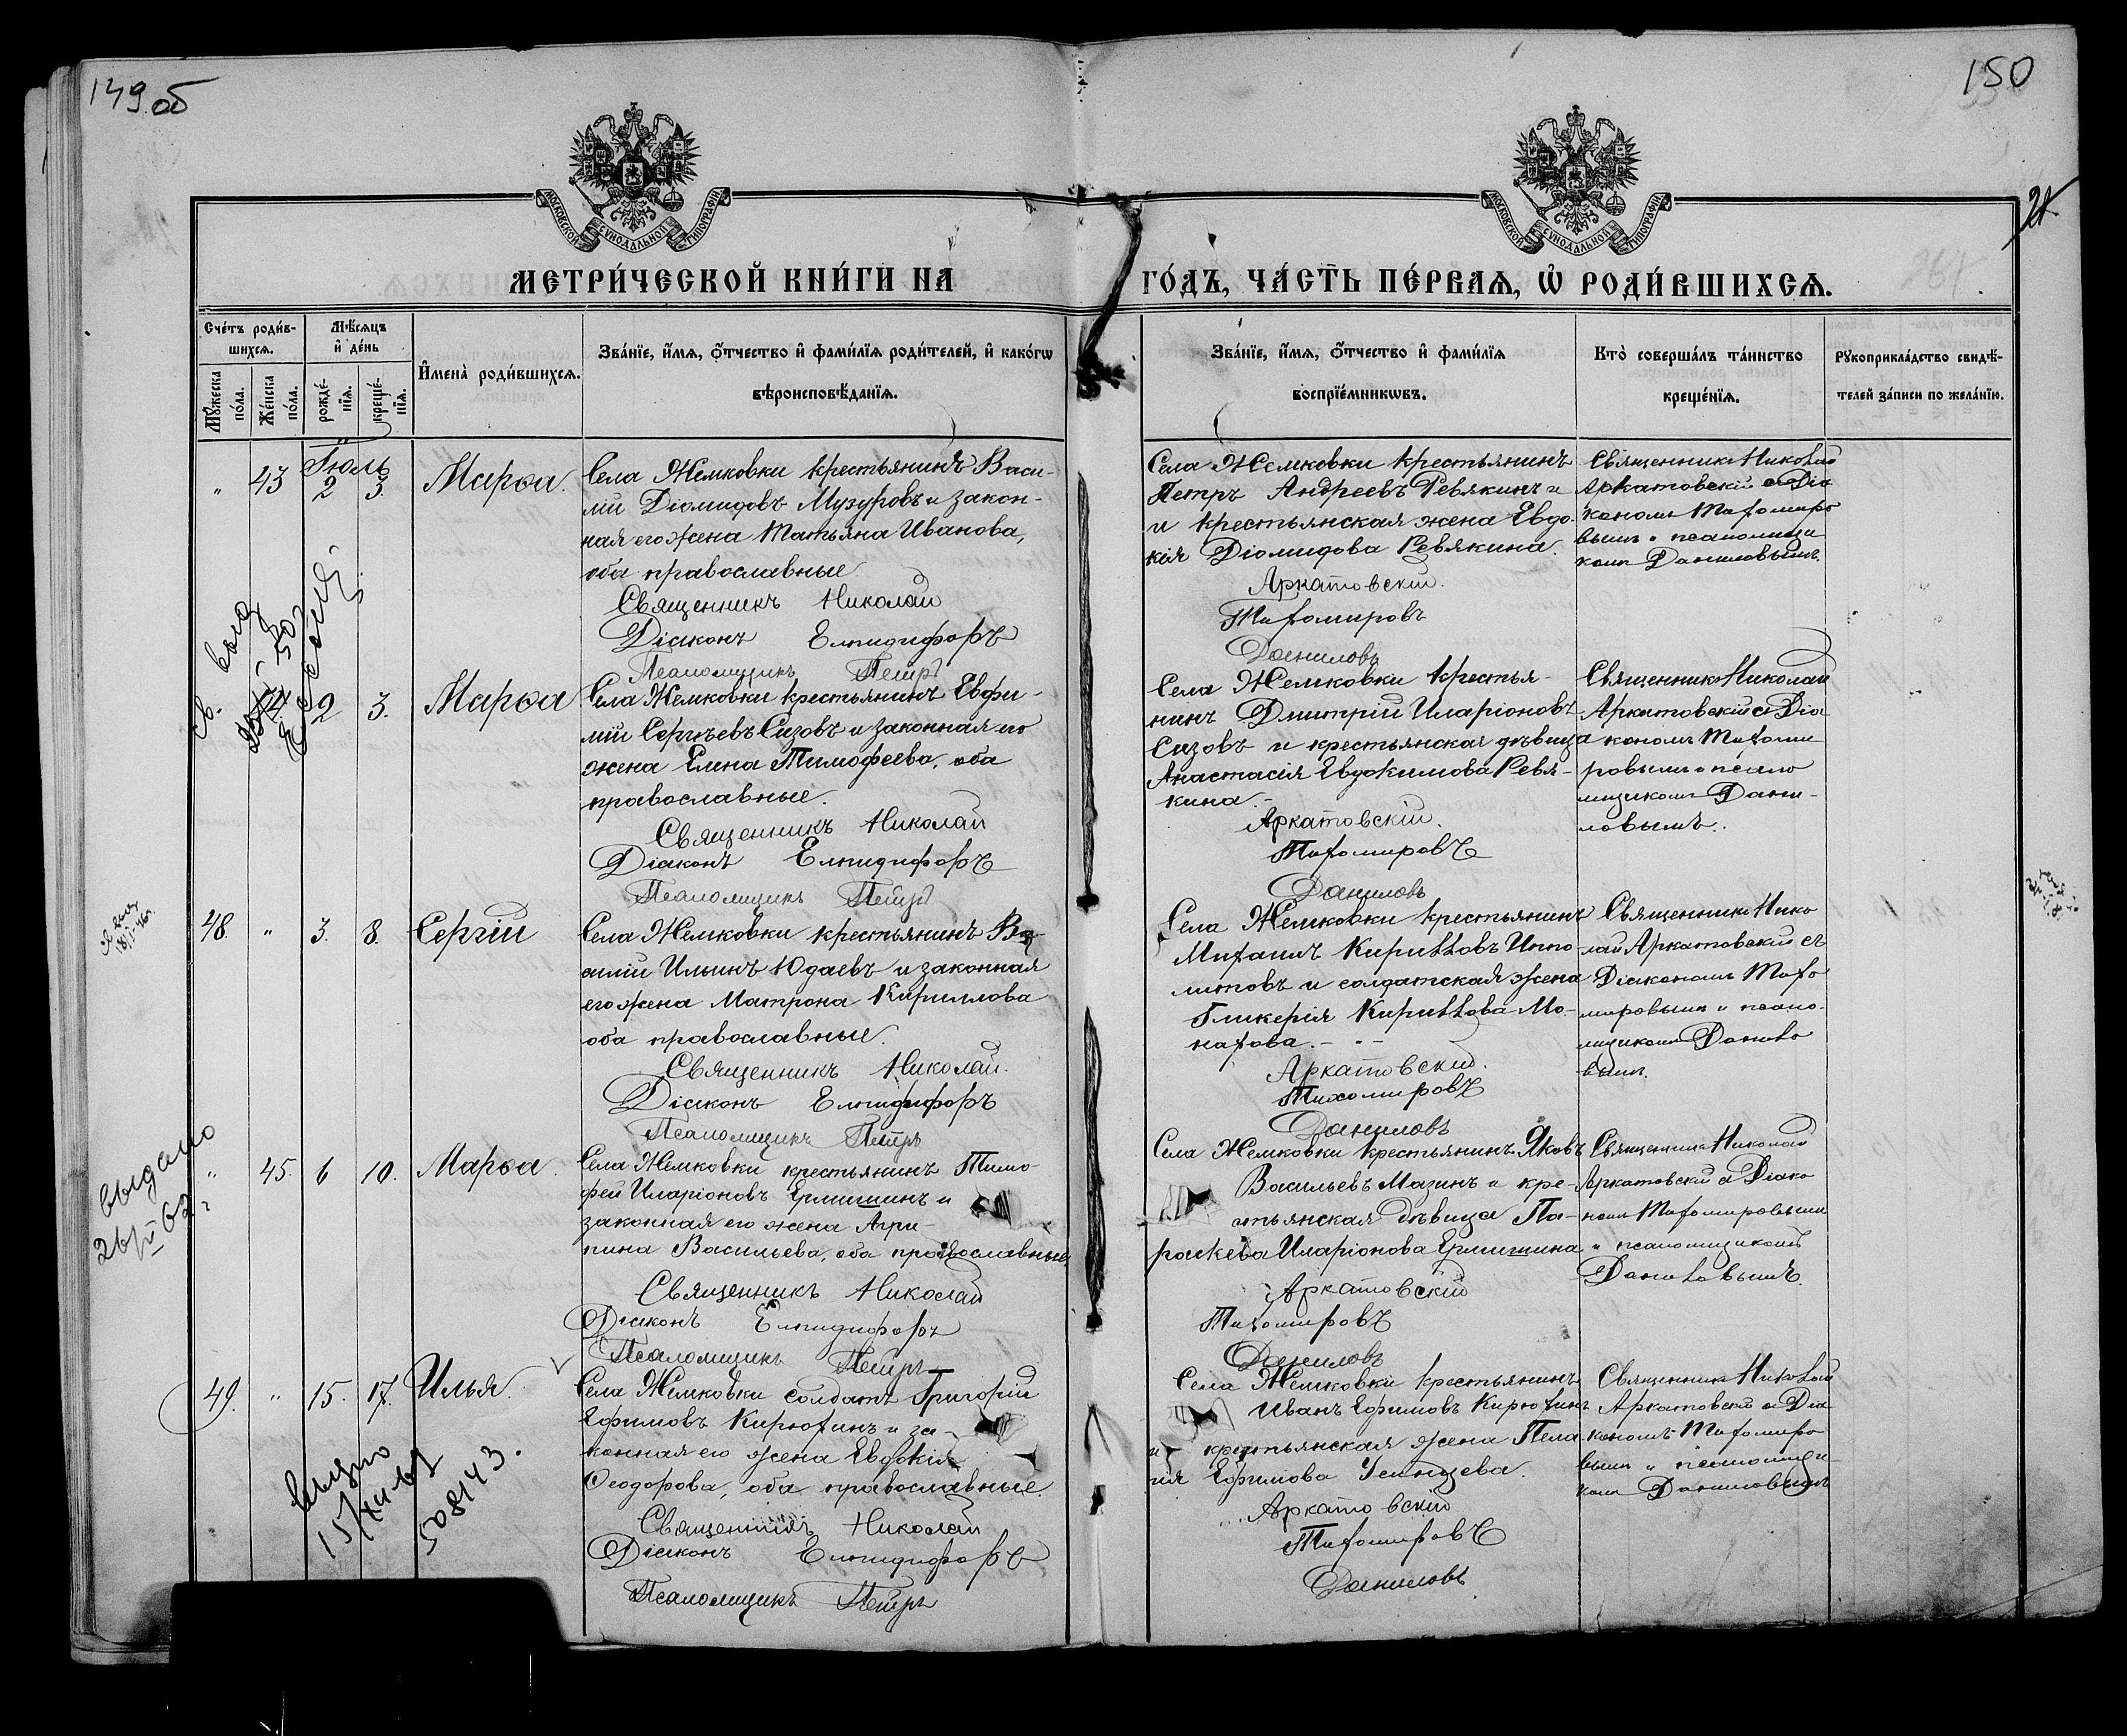 149 об
150
21
МОСКОВСКОЙ СѴНОДАЛЬНОЙ ТИПОГРАФІИ
МОСКОВСКОЙ СѴНОДАЛЬНОЙ ТИПОГРАФІИ
МЕТРИ́ЧЕСКОЙ КНИ́ГИ НА
ГО́ДЪ, ЧА́СТЬ ПЕ́РВАѦ, Ѡ҆ РОДИ́ВШИХСѦ.
Сче́тъ роди́в-
шихсѧ.
Мѣ́сѧцъ
и҆ де́нь
И҆мена̀ роди́вшихсѧ.
Зва́нїе, и҆́мѧ, ѻ҆́тчество и҆ фами́лїѧ роди́телей, и҆ како́гѡ
вѣроисповѣ́данїѧ.
Мꙋ́жеска
по́ла.
Же́нска
по́ла.
рожде́-
нїѧ.
креще́-
нїѧ.
Зва́нїе, и҆́мѧ, ѻ҆́тчество и҆ фами́лїѧ
воспрїе́мникѡвъ.
Кто̀ соверша́лъ та́инство
креще́нїѧ.
Рꙋкоприкла́дство свидѣ́-
телей за́писи по жела́нїю.
Іюль
" 43 2 3. Марѳа.
Села Жемковки крестьянинъ Васи-
лій Діомидовъ Музуровъ и закон-
ная его жена Татьяна Иванова,
оба православные.
Священникъ Николай
Діаконъ Елпидифоръ
Псаломщикъ Петръ
Села Жемковки крестьянинъ
Петръ Андреевъ Ревякинъ и
и крестьянская жена Евдо-
кія Діомидова Ревякина.
Аркатовскій.
Тихомировъ
Даниловъ
Священникъ Николай
Аркатовскій съ Діа
кономъ Тихомиро
вымъ и псаломщи
комъ Даниловымъ.
44 2 3. Марѳа
Села Жемковки крестьянинъ Евфи-
мій Сергѣевъ Сизовъ и законная его
жена Елена Тимофеева, оба
православные.
Священникъ Николай
Діаконъ Елпидифоръ
Псаломщикъ Петръ
Села Жемковки крестья-
нинъ Дмитрій Иларіоновъ
Сизовъ и крестьянская дѣвица
Анастасія Евдокимова Ревя-
кина.-
Аркатовскій.
Тихомировъ
Даниловъ
Священникъ Николай
Аркатовскій съ Діа
кономъ Тихоми-
ровымъ и псало
мщикомъ Дани-
ловымъ.
48. " 3. 8. Сергій
Села Жемковки крестьянинъ Ва-
силій Ильинъ Юдаевъ и законная
его жена Матрона Кириллова
оба православные.
Священникъ Николай.
Діаконъ Елпидифоръ
Псаломщикъ Петръ
Села Жемковки крестьянинъ
Михаилъ Кирилловъ Иппо-
литовъ и солдатская жена
Гликерія Кириллова Мо-
нахова.-
Аркатовскій.
Тихомировъ
Даниловъ
Священникъ Нико
лай Аркатовскій съ
Діакономъ Тихо
мировымъ и псало-
мщикомъ Данило
вымъ.
" 45. 6 10. Марѳа.
Села Жемковки крестьянинъ Тимо-
фей Иларіоновъ Ермишинъ и
законная его жена Агри-
пина Васильева, оба православные.
Священникъ Николай
Діаконъ Елпидифоръ
Псаломщикъ Петръ
Села Жемковки крестьянинъ Яковъ
Васильевъ Мазинъ и кре-
стьянская дѣвица Па-
раскева Иларіонова Ермишина
Аркатовскій
Тихомировъ
Даниловъ
Священникъ Николай
Аркатовскій съ Діако
номъ Тихомировымъ
и псаломщикомъ
Даниловымъ.
49. " 15. 17. Илья.
Села Жемковки солдатъ Григорій
Ефимовъ Кирюхинъ и за-
конная его жена Евдокія
Ѳеодорова, оба православные.
Священникъ Николай
Діаконъ Елпидифоръ
Псаломщикъ Петръ
Села Жемковки крестьянинъ
Иванъ Ефимовъ Кирюхинъ
и крестьянская жена Пела-
гія Ефимова
Аркатовскій
Тихомировъ
Даниловъ
Священникъ Николай
Аркатовскій съ Діа
кономъ Тихомиро
вымъ и псаломщи-
комъ Даниловымъ
выдано
выдано
15/XII-67
508143.